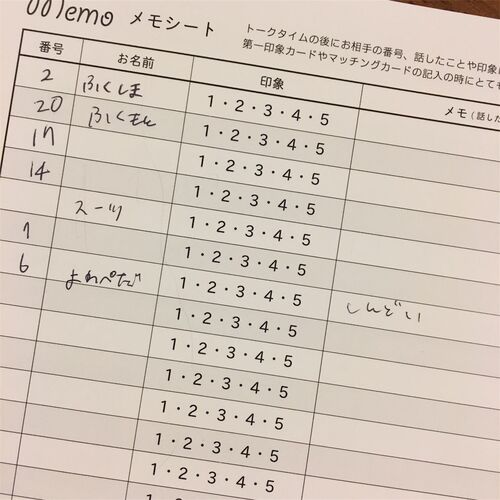 Memo メモシート
トークタイムの後にお相手の番号、話したことや印象
第一印象カードやマッチングカードの記入の時にとても
番号 お名前 印象 メモ（話した
2 ふくしま 1・2・3・4・5
20 1・2・3・4・5
17 1・2・3・4・5
14 1・2・3・4・5
スーツ 1・2・3・4・5
1 1・2・3・4・5
6 1・2・3・4・5 しんどい
1・2・3・4・5
1・2・3・4・5
1・2・3・4・5
1・2・3・4・5
1・2・3・4・5
1・2・3・4・5
1・2・3・4・5